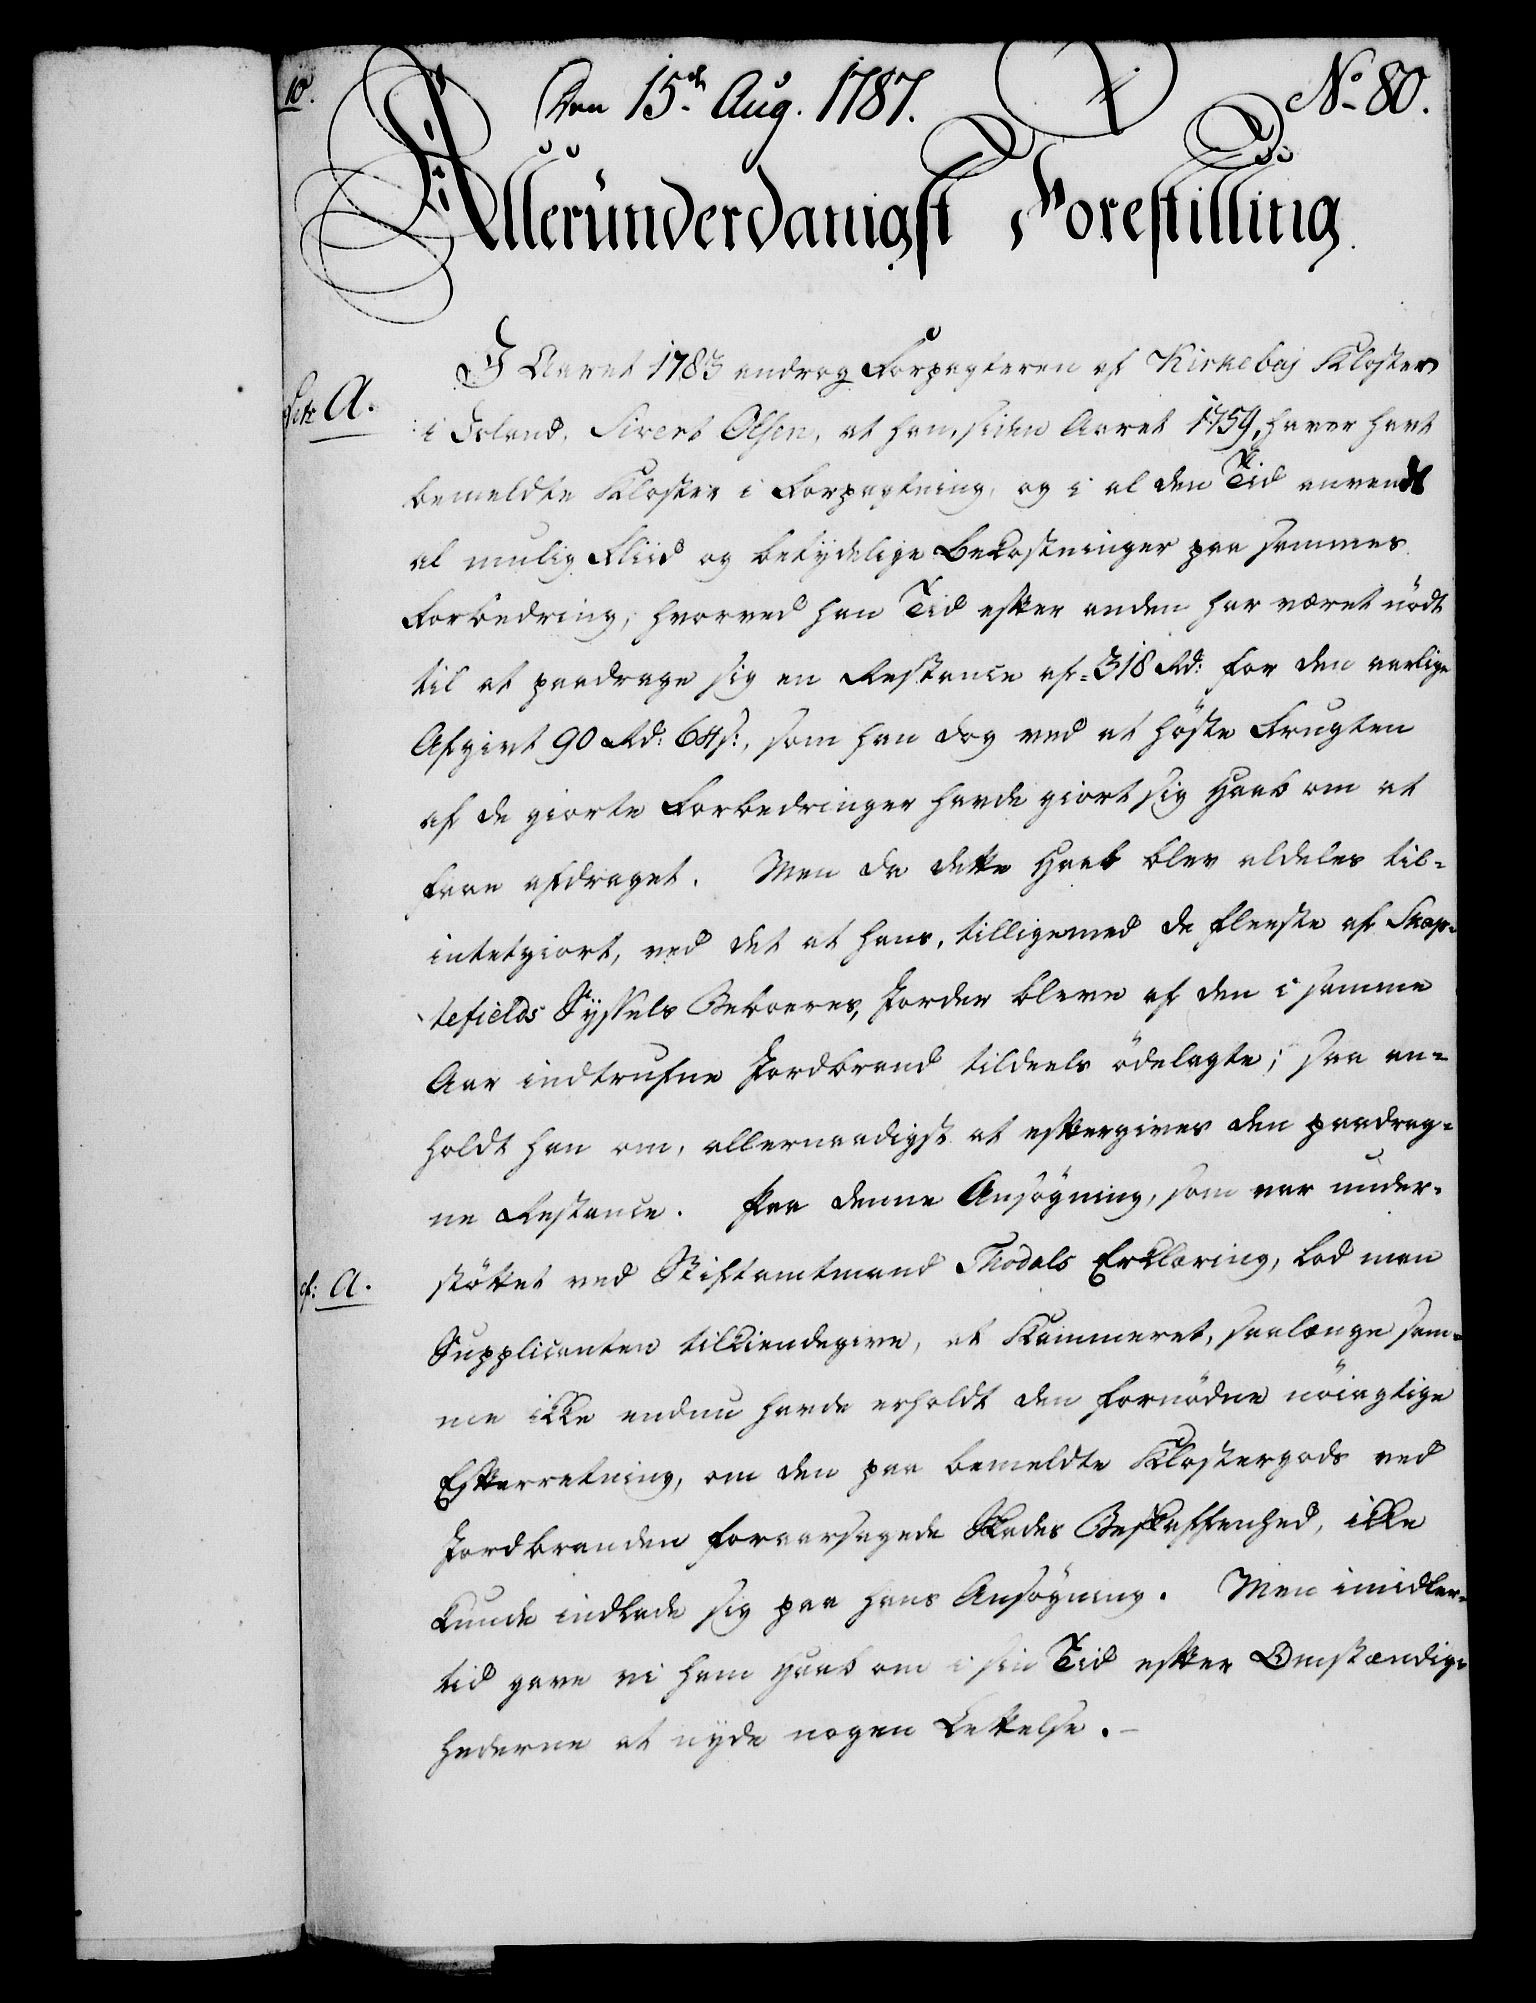 10.
Den 15de Aug. 1787.
No 80.
Alleründerdanigst Forestilling.
Litr A.
I Aaret 1783 androg Forpagteren af Kirkebaj Kloster
i Island, Sivert Olsen, at han, siden Aaret 1759, haver havt
bemeldte Kloster i Forpagtning, og i al den Tid anvendt
al mulig Fliid og betydelige Bekostninger paa sammes
Forbedring, hvorved han Tid efter anden har været nödt
til at paadrage sig en Restance af 318 Rd: for den aarlige
Afgivt 90 Rd: 64 s:, som han dog ved at höste Frugten
af de giorte Forbedringer havde giort sig Haab om at
faae afdraget. Men da dette Haab blev aldeles til-
intetgiort, ved det at hans, tilligemed de fleeste af Skap-
tefields Syssels Beboeres, Jorder bleve af den i samme
Aar indtrufne Jordbrand tildeels ödelagte; saa an-
holdt han om, allernaadigst at eftergives den paadrag-
ne Restance. Paa denne Ansögning, som var under-
cf: A.
stöttet ved Stiftamtmand Thodals Erklæring, lod man
Supplicanten tilkiendegive, at Kammeret, saalænge sam-
me ikke endnu havde erholdt den fornödne nöiagtige
Efterretning, om den paa bemeldte Klostergods ved
Jordbranden foraarsagede Skades Beskaffenhed, ikke
kunde indlade sig paa hans Ansögning. Men imidler-
tid gave vi ham Haab om i sin Tid efter Omstændig-
hederne at nyde nogen Lettelse.